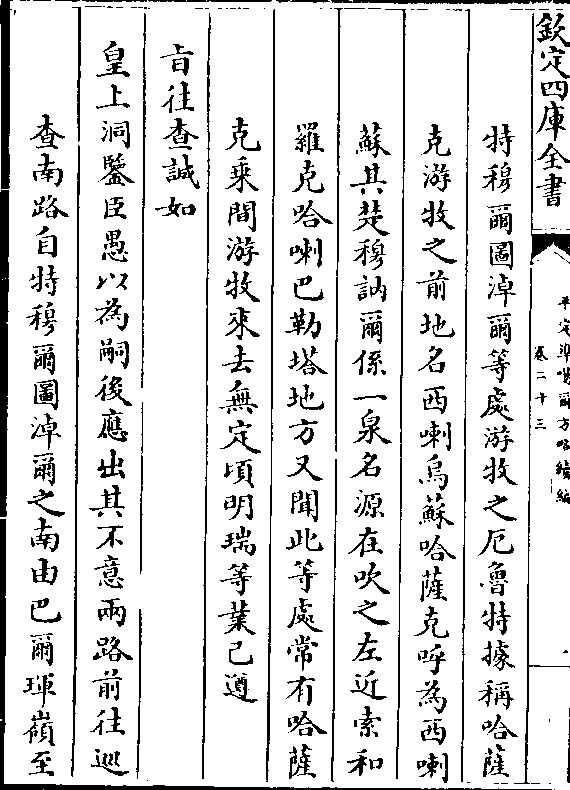 欽定四庫全書
平定準噶爾方略續編
卷二十三
特穆爾圖淖爾等處游牧之厄魯特據稱哈薩
克游牧之前地名西喇烏蘇哈薩克呼為西喇
蘇其楚穆訥爾係一泉名源在吹之左近索和
羅克哈喇巴勒塔地方又聞此等處常有哈薩
克乗間游牧來去無定頃明瑞等業已遵
旨往查誠如
皇上洞鑒臣愚以為嗣後應出其不意兩路前往巡
查南路自特穆爾圖淖爾之南由巴爾琿嶺至